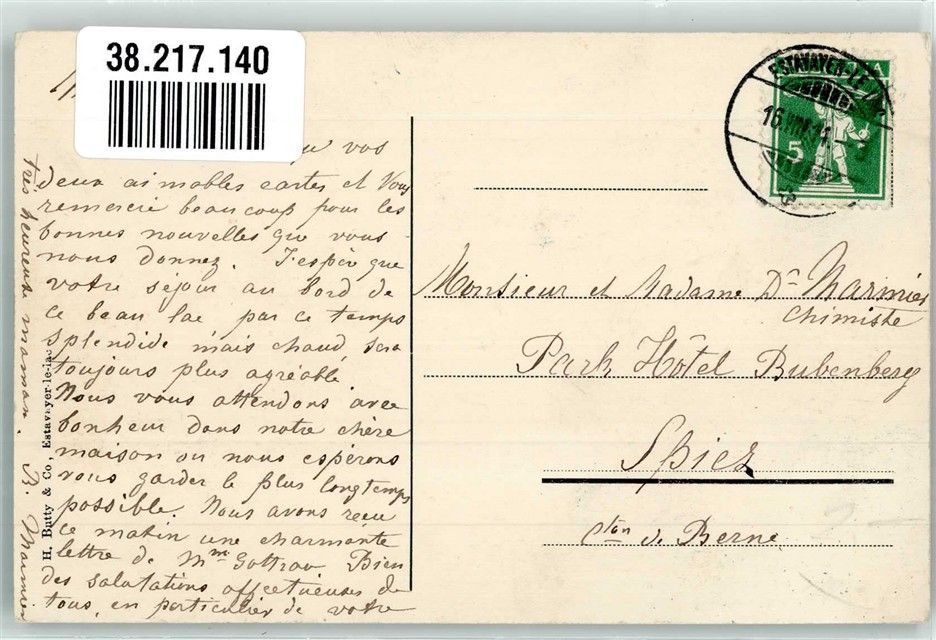 38.217.140
vos
deux aimables cartes et Vous
remercie beaucoup pour les
bonnes nouvelles que vous
nous donnez. J'espère que
votre séjour au bord de
ce beau lac par ce temps
splendide mais chaud sera
toujours plus agréable.
Nous vous attendons avec
bonheur dans notre chère
maison ou nous espérons
vous garder le plus longtemps
possible. Nous avons reçu
ce matin une charmante
lettre de Mme Gottrau Bien
des salutations affectueuses de
tous, en particulier de votre
très heureuse maman.
H. Butty & Co, Estavayer-le-lac
ESTAVAYER-LE
5
Monsieur et Madame Dr Marmier
Chimiste
Park Hôtel Bubenberg
Spiez
Cton de Berne